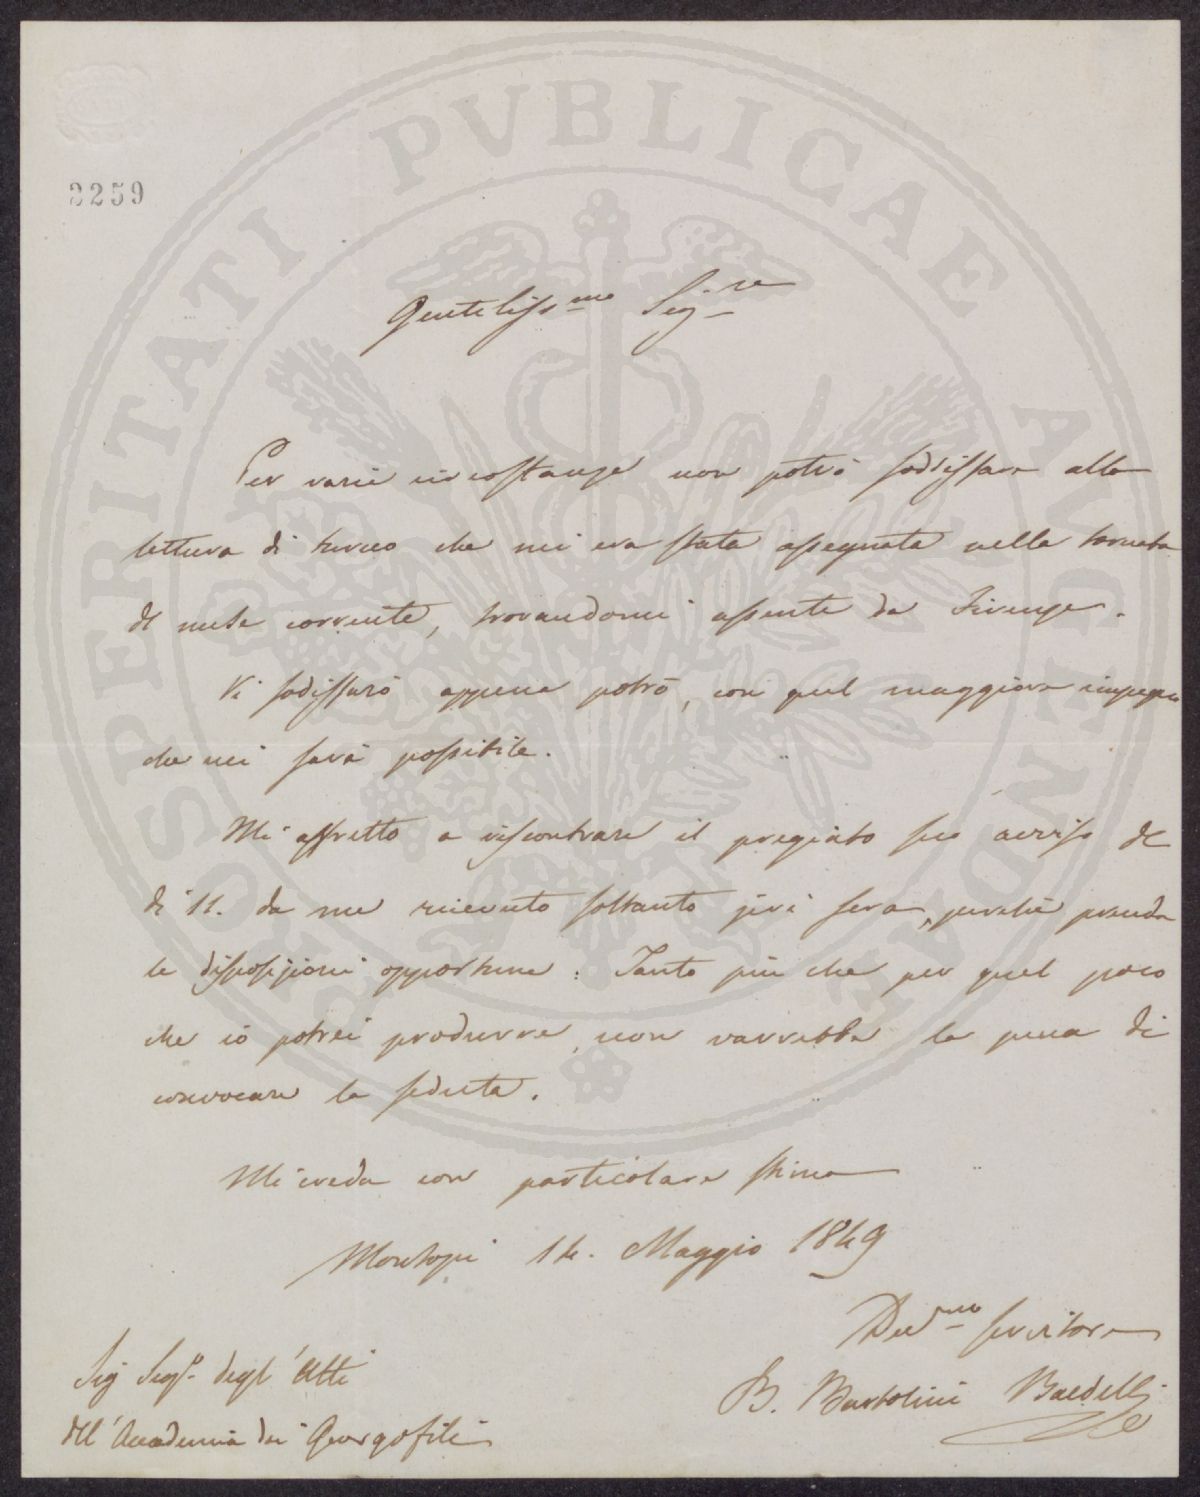 2259
Gentiliss.mo Sig.re
Per varie circostanze non potrò soddisfare alla
lettura di turno che mi era stata assegnata nella tornata
del mese corrente, trovandomi assente da Firenze.
Vi sodisfarò appena potrò, con quel maggiore impegno
che mi sarà possibile.
Mi affretto a riscontrare il pregiato suo avviso del
dì 11. da me ricevuto soltanto jeri sera, perchè prenda
le disposizioni opportune: Tanto più che per quel poco
che io potrei produrre, non varrebbe la pena di
convocare la seduta.
Mi creda con particolare stima
Montopoli 14. Maggio 1849
Dev.mo servitore
B. Bartolini Baldelli
Sig Seg.o degl'Atti
dell'Accademia dei Georgofili
PROSPERITATI PVBLICAE AVGENDAE